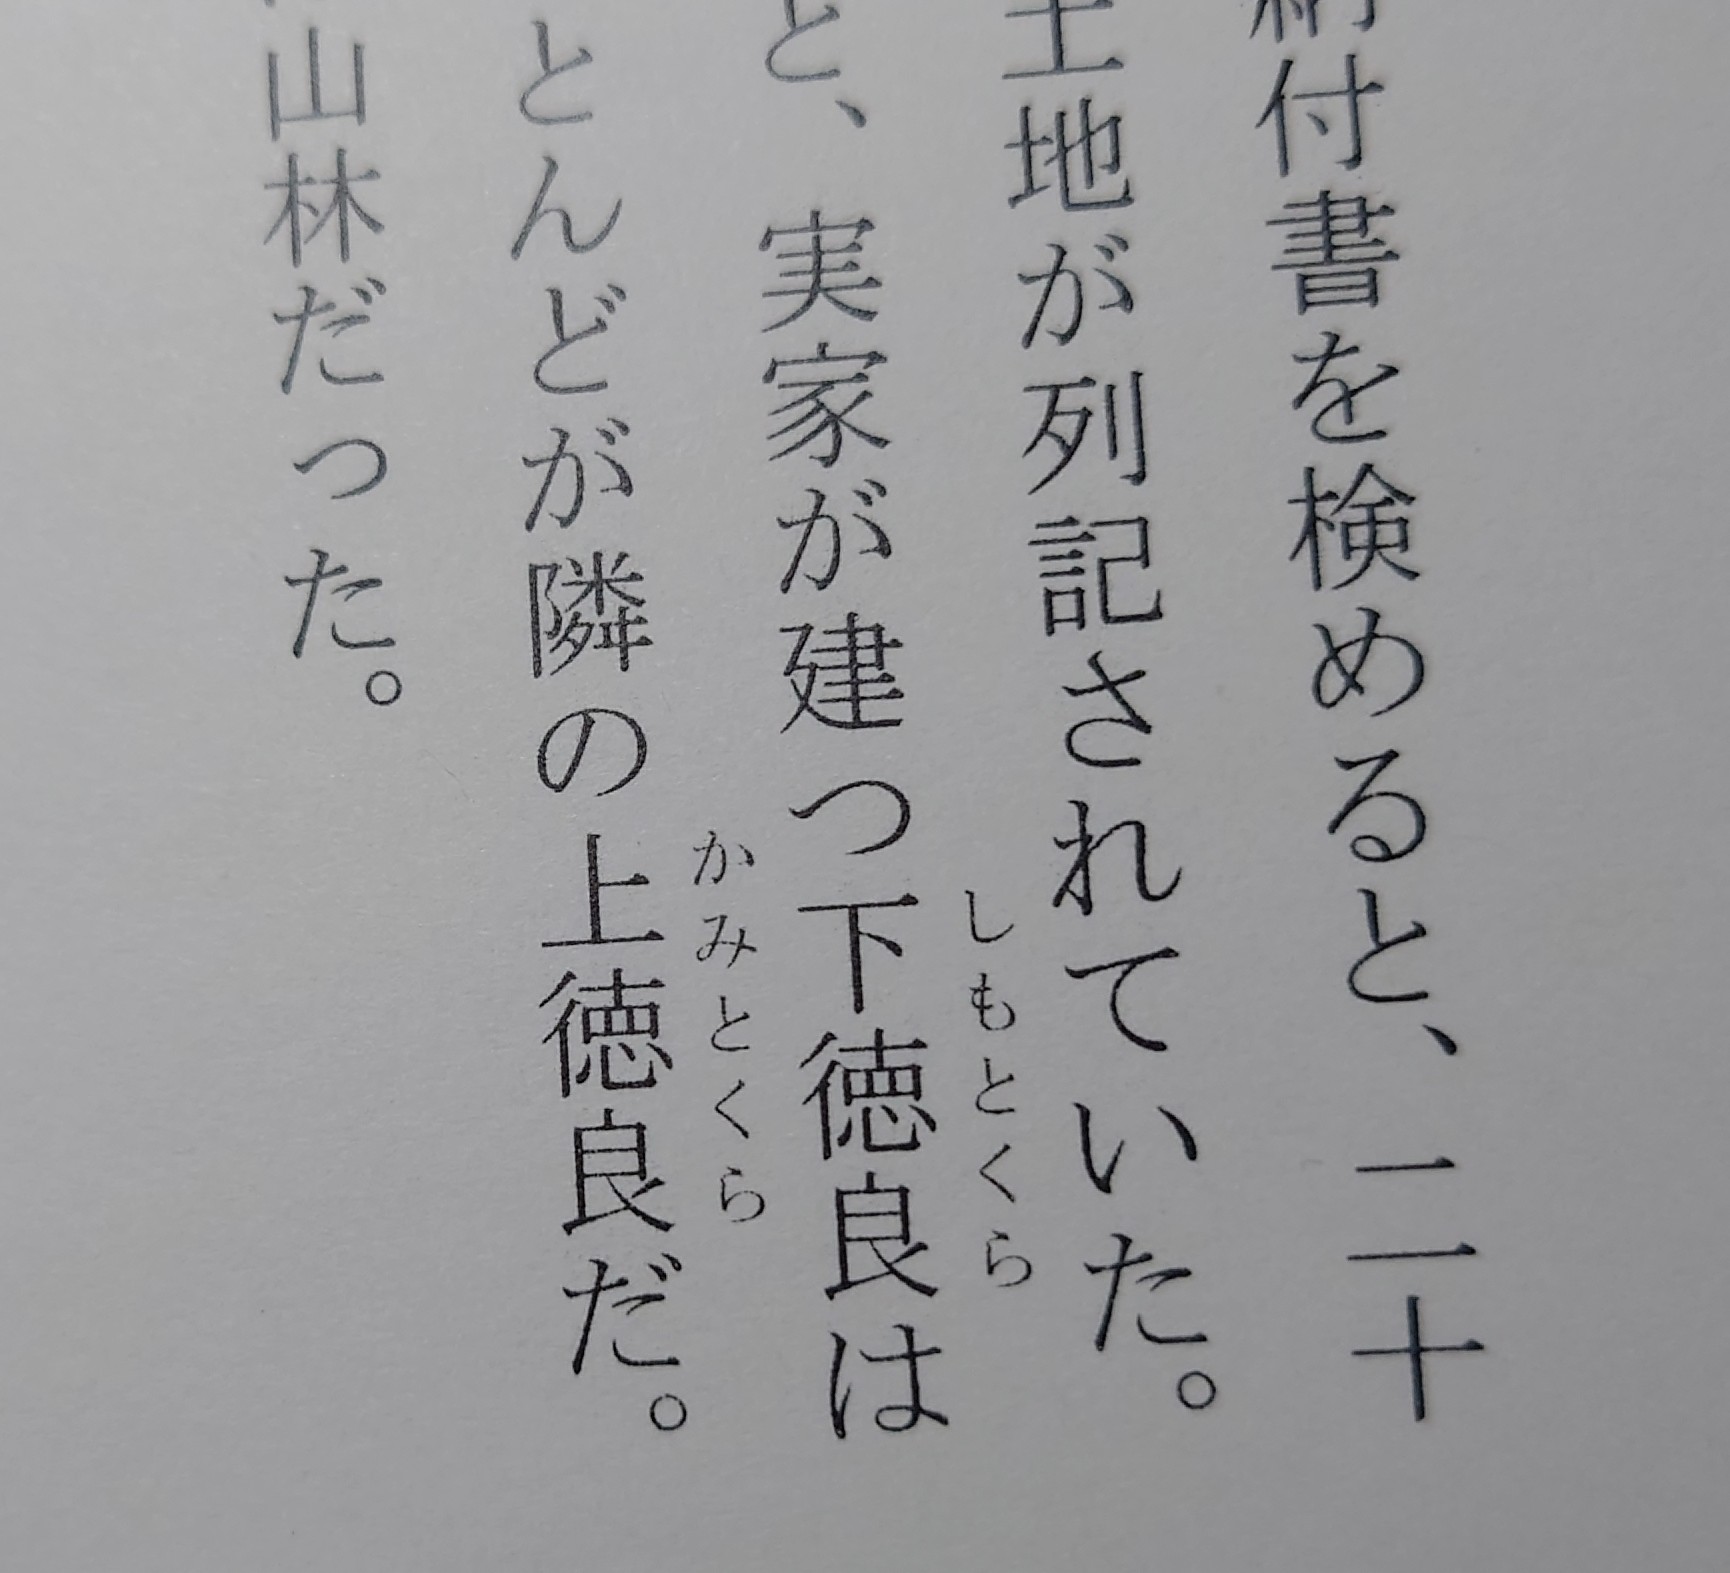 納付書を検めると、二十
土地が列記されていた。
と、実家が建つ下徳良は
しもとくら
とんどが隣の上徳良だ。
かみとくら
山林だった。